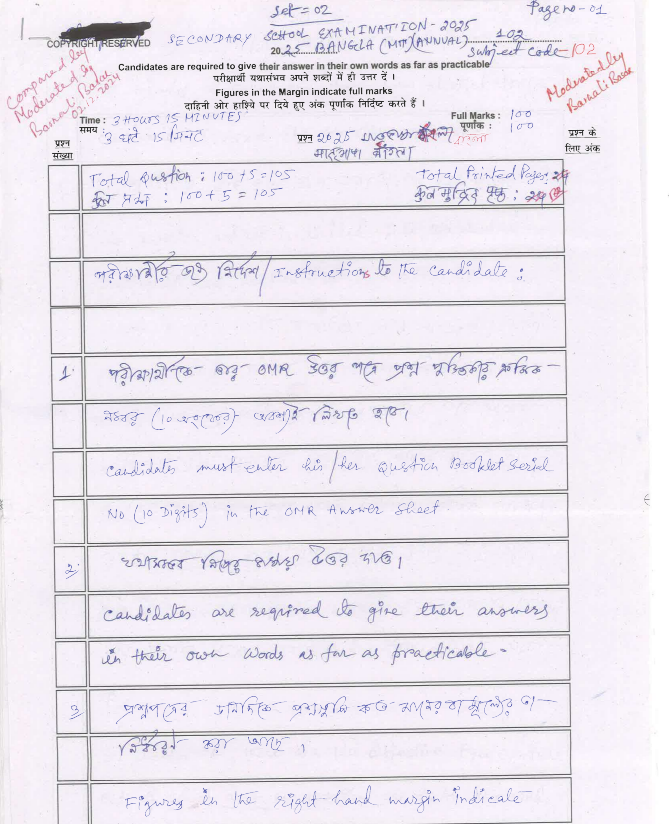 Set = 02
Page no - 01
COPYRIGHT RESERVED
SECONDARY SCHOOL EXAMINATION - 2025
102
2025 BANGLA (MT) (ANNUAL)
Subject Code - 102
Compared by
Moderated by
Barnali Balal
02.12.2024
Moderated by
Barnali Basak
Candidates are required to give their answer in their own words as far as practicable
परीक्षार्थी यथासंभव अपने शब्दों में ही उत्तर दें ।
Figures in the Margin indicate full marks
दाहिनी ओर हाशिये पर दिये हुए अंक पूर्णांक निर्दिष्ट करते हैं ।
Time : 3 HOURS 15 MINUTES
समय : 3 घंटे 15 मिनट
Full Marks : 100
पूर्णांक : 100
प्रश्न 2025
मातृभाषा বাংলা
प्रश्न संख्या
प्रश्न के लिए अंक
Total Question : 100 + 5 = 105
Total Printed Page : 24
কুল প্রশ্ন : 100 + 5 = 105
কুল মুদ্রিত পৃষ্ঠ : 24
পরীক্ষার্থীর জন্য নির্দেশ / Instructions to the candidate :
1. পরীক্ষার্থীকে তার OMR উত্তর পত্রে প্রশ্ন পুস্তিকার ক্রমিক -
নম্বর (10 অঙ্কের) অবশ্যই লিখতে হবে।
Candidates must enter his / her Question Booklet Serial
No (10 Digits) in the OMR Answer Sheet.
2. যথাসম্ভব নিজের ভাষায় উত্তর দাও।
Candidates are required to give their answers
in their own words as far as practicable -
3. প্রশ্নপত্রের ডানদিকে প্রশ্নগুলি কত মানের বা মূল্যের তা -
নির্ধারণ করা আছে ।
Figures in the right hand margin indicate